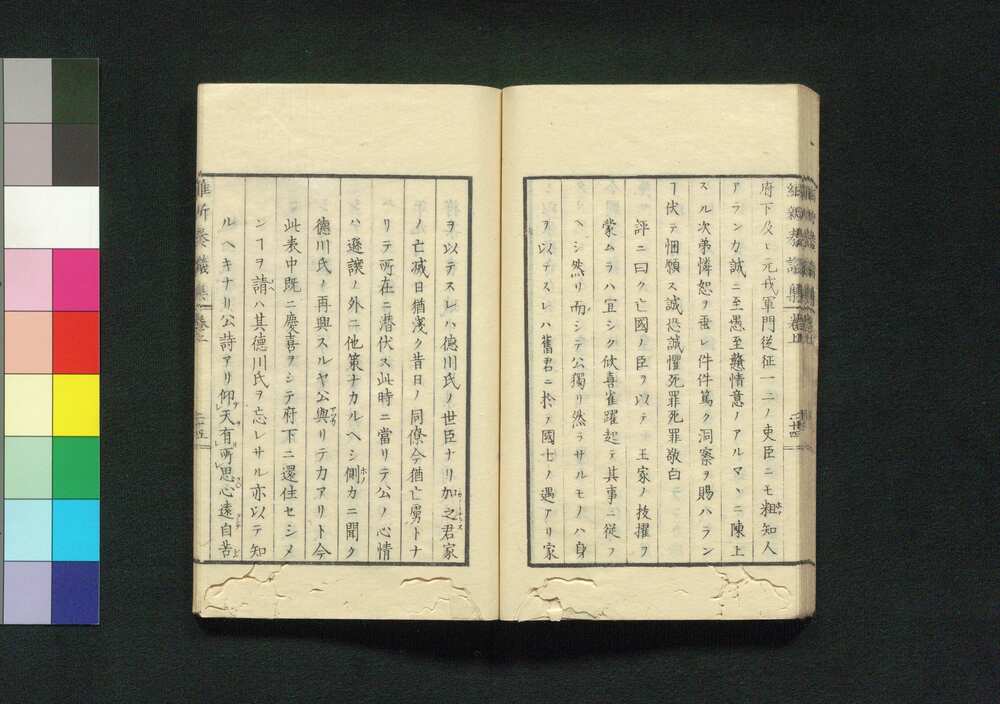 府下及ヒ元戎軍門従征一二ノ吏臣ニモ粗知人
アランカ誠ニ至愚至戇情意ノアルマヽニ陳上
スル次第憐恕ヲ垂レ件件篤ク洞察ヲ賜ハラン
ヿ伏テ悃願ス誠恐誠懼死罪死罪敬白
評ニ曰ク亡國ノ臣ヲ以テ王家ノ抜擢ヲ
蒙ムラハ宜シク欣喜雀躍起テ其事ニ從フ
ヘシ然リ而シテ公獨リ然ラサルモノハ身
ヲ以テスレハ舊君ニ於テ國士ノ遇アリ家
ヲ以テスレハ德川氏ノ世臣ナリ加之君家
ノ亡滅日猶淺ク昔日ノ同僚今猶亡虜トナ
リテ所在ニ潜伏ス此時ニ當リテ公ノ心情
ハ遜讓ノ外ニ他策ナカルヘシ側カニ聞ク
德川氏ノ再興スルヤ公與リテ力アリト今
此表中既ニ慶喜ヲシテ府下ニ還住セシメ
ンヿヲ請ハ其德川氏ヲ忘レサル亦以テ知
ルヘキナリ公詩アリ仰天有所思心遠自苦